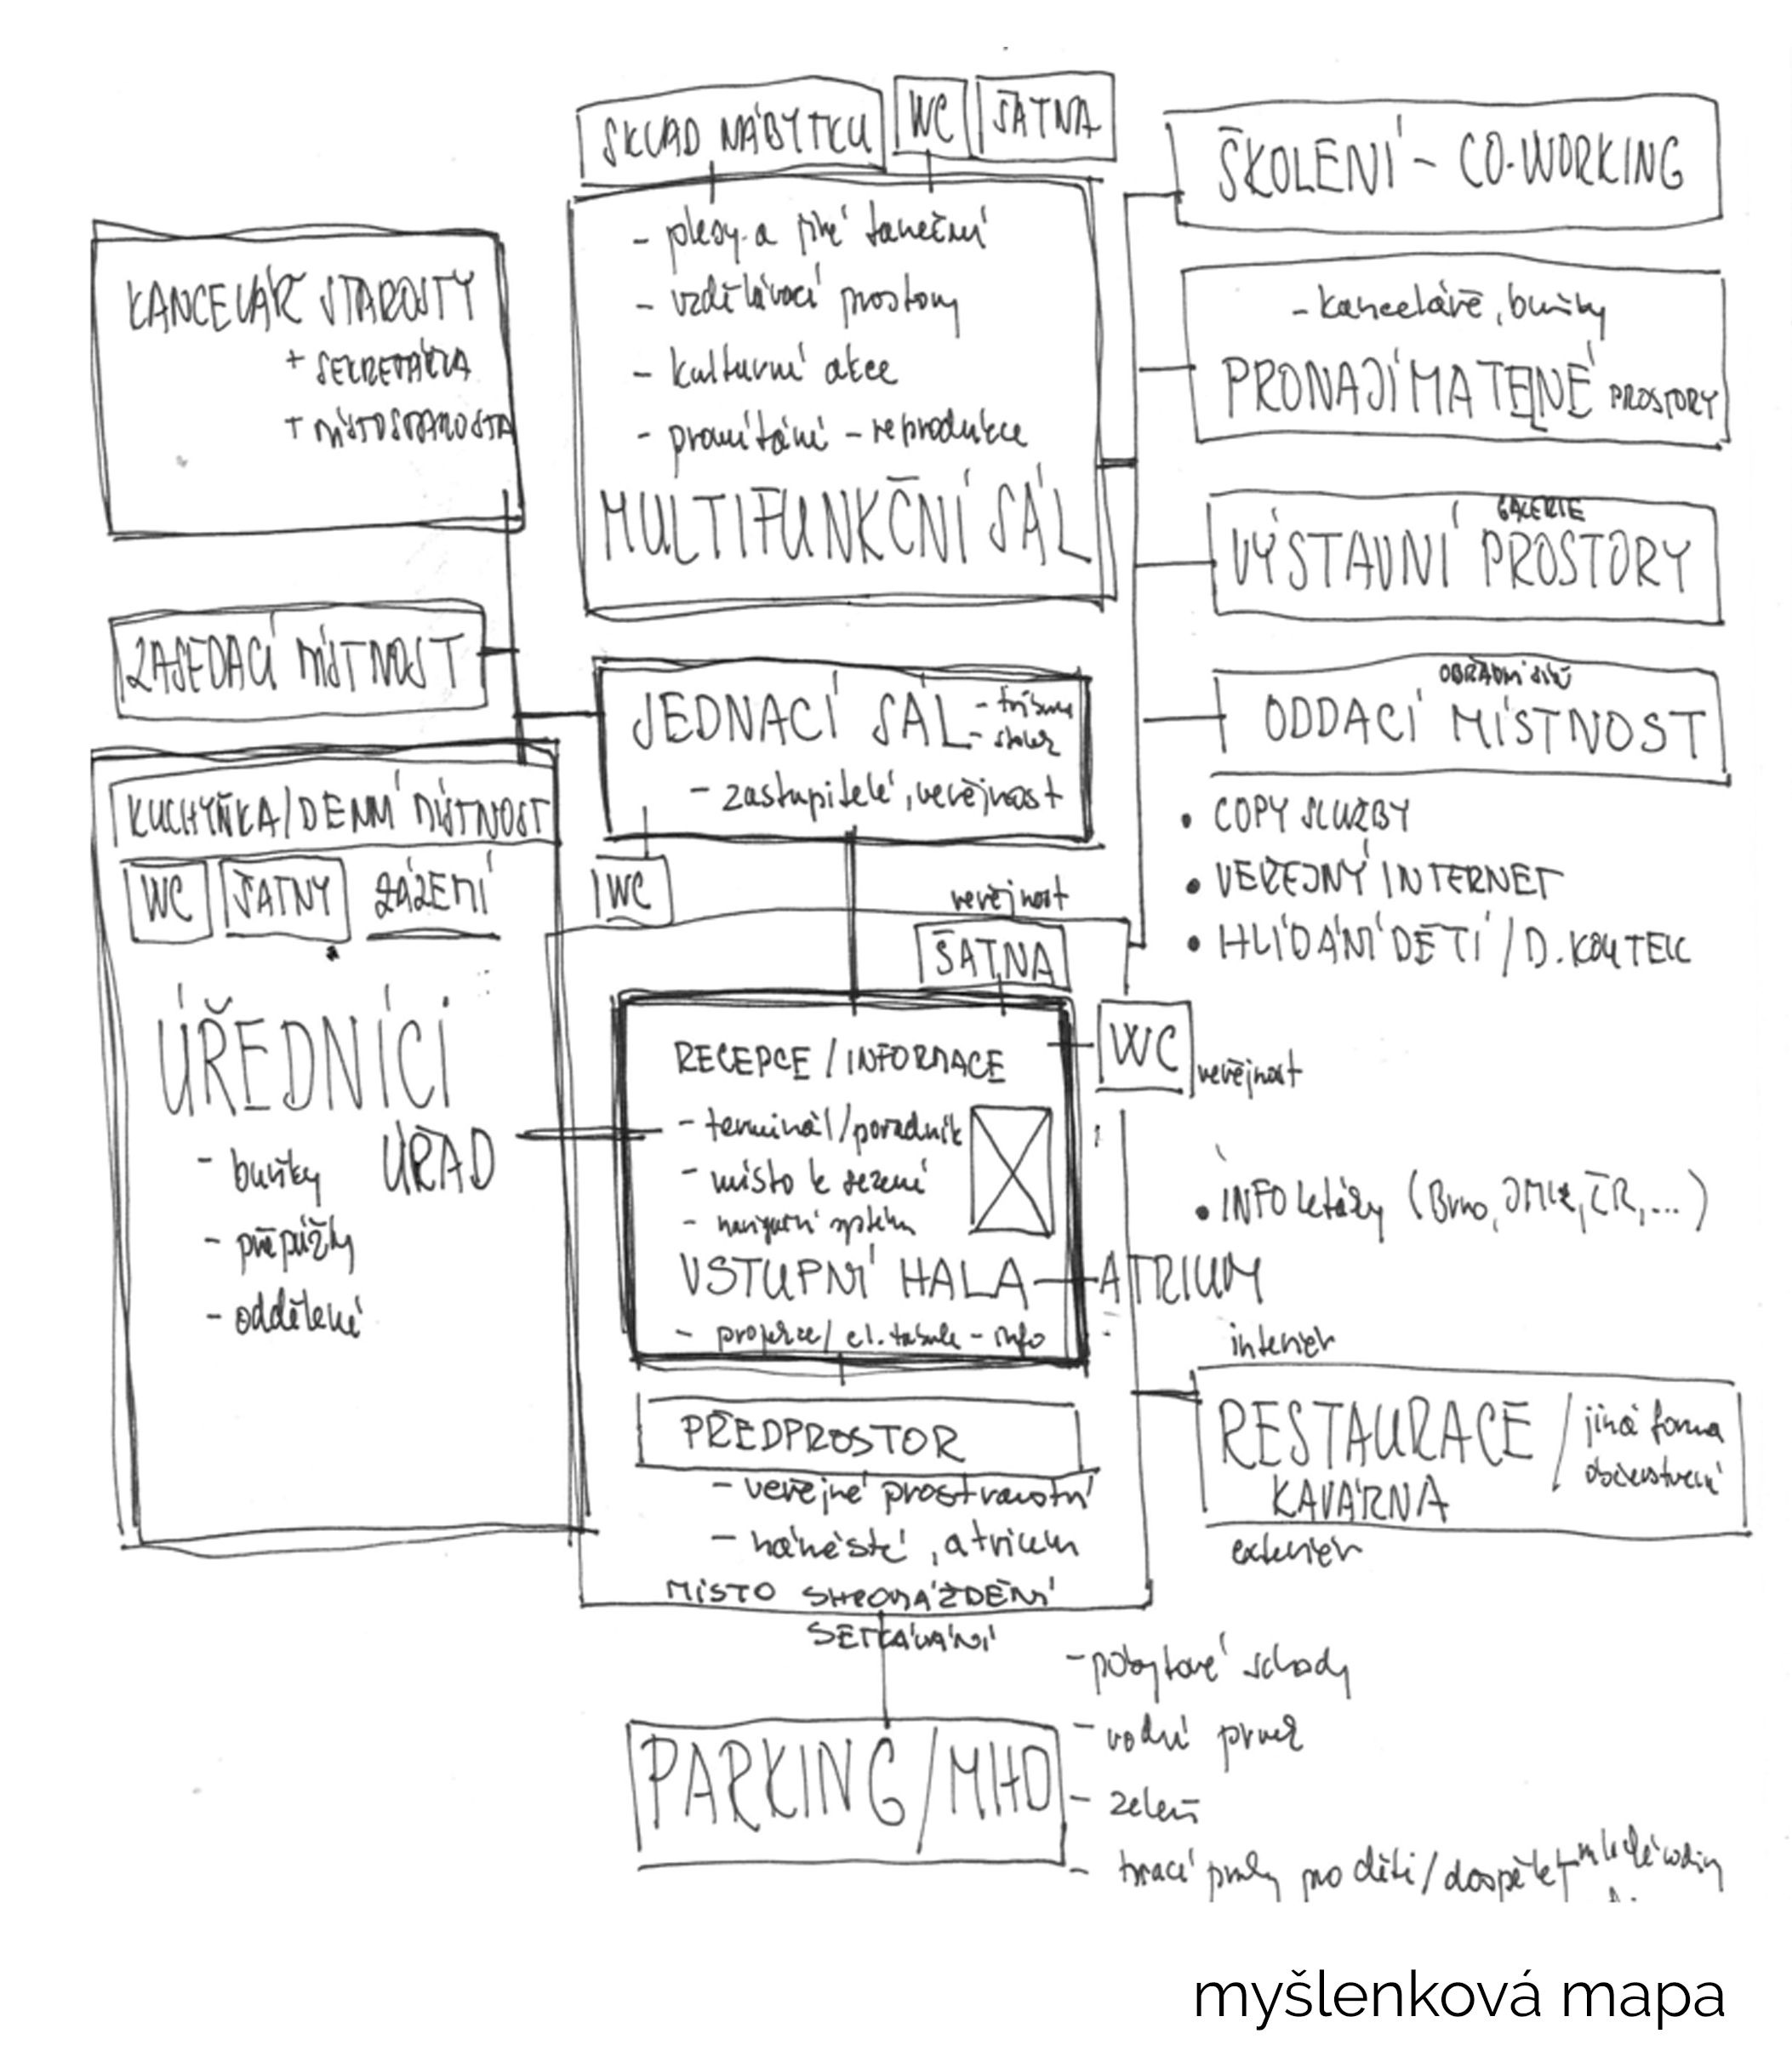 SKLAD NÁBYTKU
WC
ŠATNA
- plesy a jiné taneční
- vzdělávací prostory
- kulturní akce
- promítání - reprodukce
MULTIFUNKČNÍ SÁL
KANCELÁŘ STAROSTY
+ SEKRETÁŘKA
+ MÍSTOSTAROSTA
ZASEDACÍ MÍSTNOST
JEDNACÍ SÁL
- zastupitelé, veřejnost
WC
KUCHYŇKA/DENNÍ MÍSTNOST
WC
ŠATNY
ZÁZEMÍ
ÚŘEDNÍCI
ÚŘAD
- buňky
- přepážky
- oddělení
veřejnost
ŠATNA
RECEPCE / INFORMACE
- terminál/pořadník
- místo k sezení
- navigační systém
VSTUPNÍ HALA - ATRIUM
- projekce/ el. tabule - info
WC
veřejnost
PŘEDPROSTOR
- veřejné prostranství
- náměstí, atrium
MÍSTO SHROMÁŽDĚNÍ
SETKÁVÁNÍ
PARKING/MHD
- pobytové schody
- vodní prvek
- zeleň
- hrací prvky pro děti/dospělé
ŠKOLENÍ - CO-WORKING
- kanceláře, buňky
PRONAJÍMATELNÉ PROSTORY
GALERIE
VÝSTAVNÍ PROSTORY
OBŘADNÍ SÍŇ
ODDACÍ MÍSTNOST
• COPY SLUŽBY
• VEŘEJNÝ INTERNET
• HLÍDÁNÍ DĚTÍ / D. KOUTEK
• INFO letáky (Brno, JMK, ČR, ...)
interiér
RESTAURACE / jiná forma občerstvení
KAVÁRNA
exteriér
myšlenková mapa